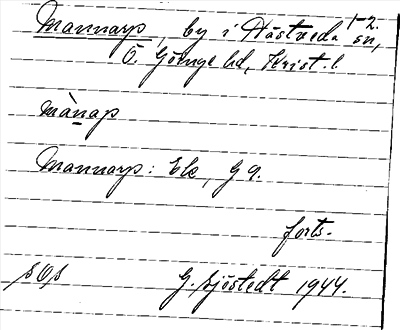 Mannarp, by i Nästveda sn, 1-2.
Ö. Göinge hd, Krist. l.
mànap
Mannarp: Ek, G a.
forts.
sOs G. Sjöstedt 1944.